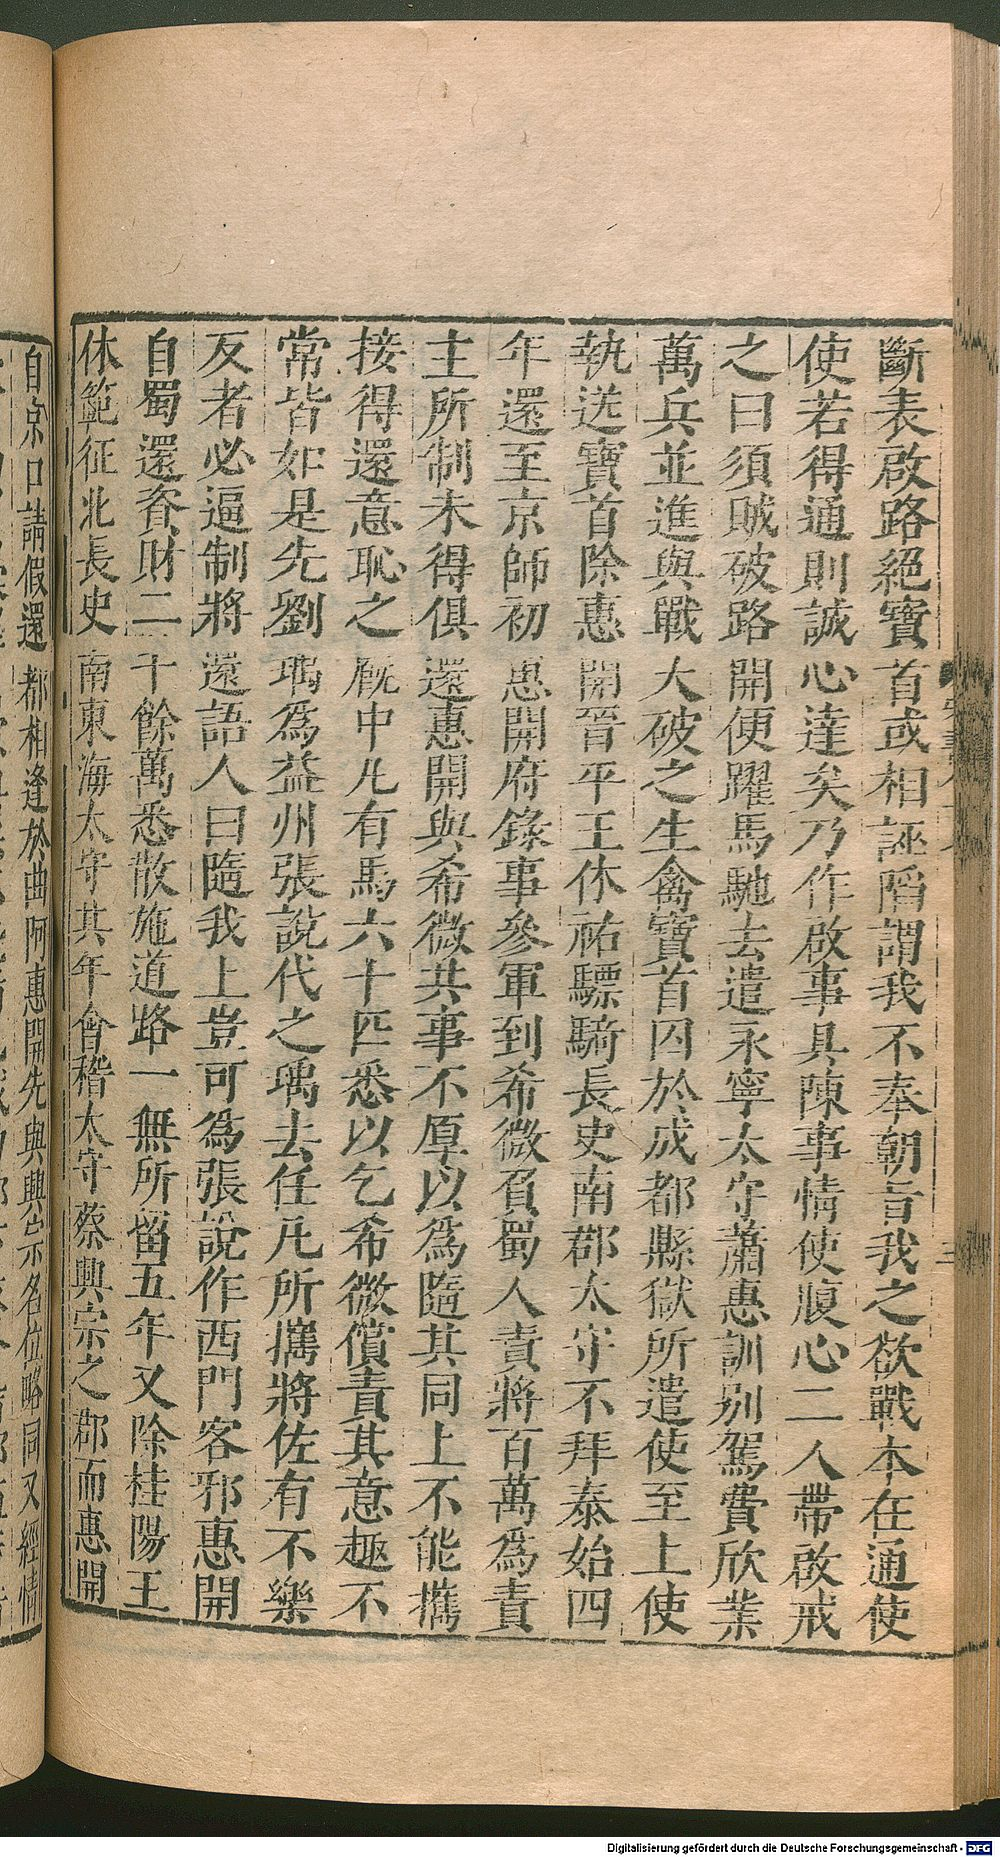 斷表啟路絕寶首或相誣謟謂我不奉朝旨我之欲戰本在通使
使若得通則誠心達矣乃作啟事具陳事情使腹心二人帶啟戒
之曰須賊破路開便躍馬馳去遣永寧太守蕭惠訓别駕費欣業
萬兵並進與戰大破之生禽寶首囚於成都縣獄所遣使至上使
執送寶首除惠開晉平王休祐驃騎長史南郡太守不拜泰始四
年還至京師初惠開府錄事參軍到希微負蜀人責將百萬爲責
主所制未得俱還惠開與希微共事不厚以爲隨其同上不能攜
接得還意恥之廐中凡有馬六十匹悉以乞希微償責其意趣不
常皆如是先劉瑀爲益州張說代之瑀去任凡所攜將佐有不樂
反者必逼制將還語人曰隨我上豈可爲張說作西門客邪惠開
自蜀還資財二千餘萬悉散施道路一無所留五年又除桂陽王
休範征北長史南東海太守其年會稽太守蔡興宗之郡而惠開
自京口請假還都相逢於曲阿惠開先與興宗名位略同又經情
Digitalisierung gefördert durch die Deutsche Forschungsgemeinschaft - DFG